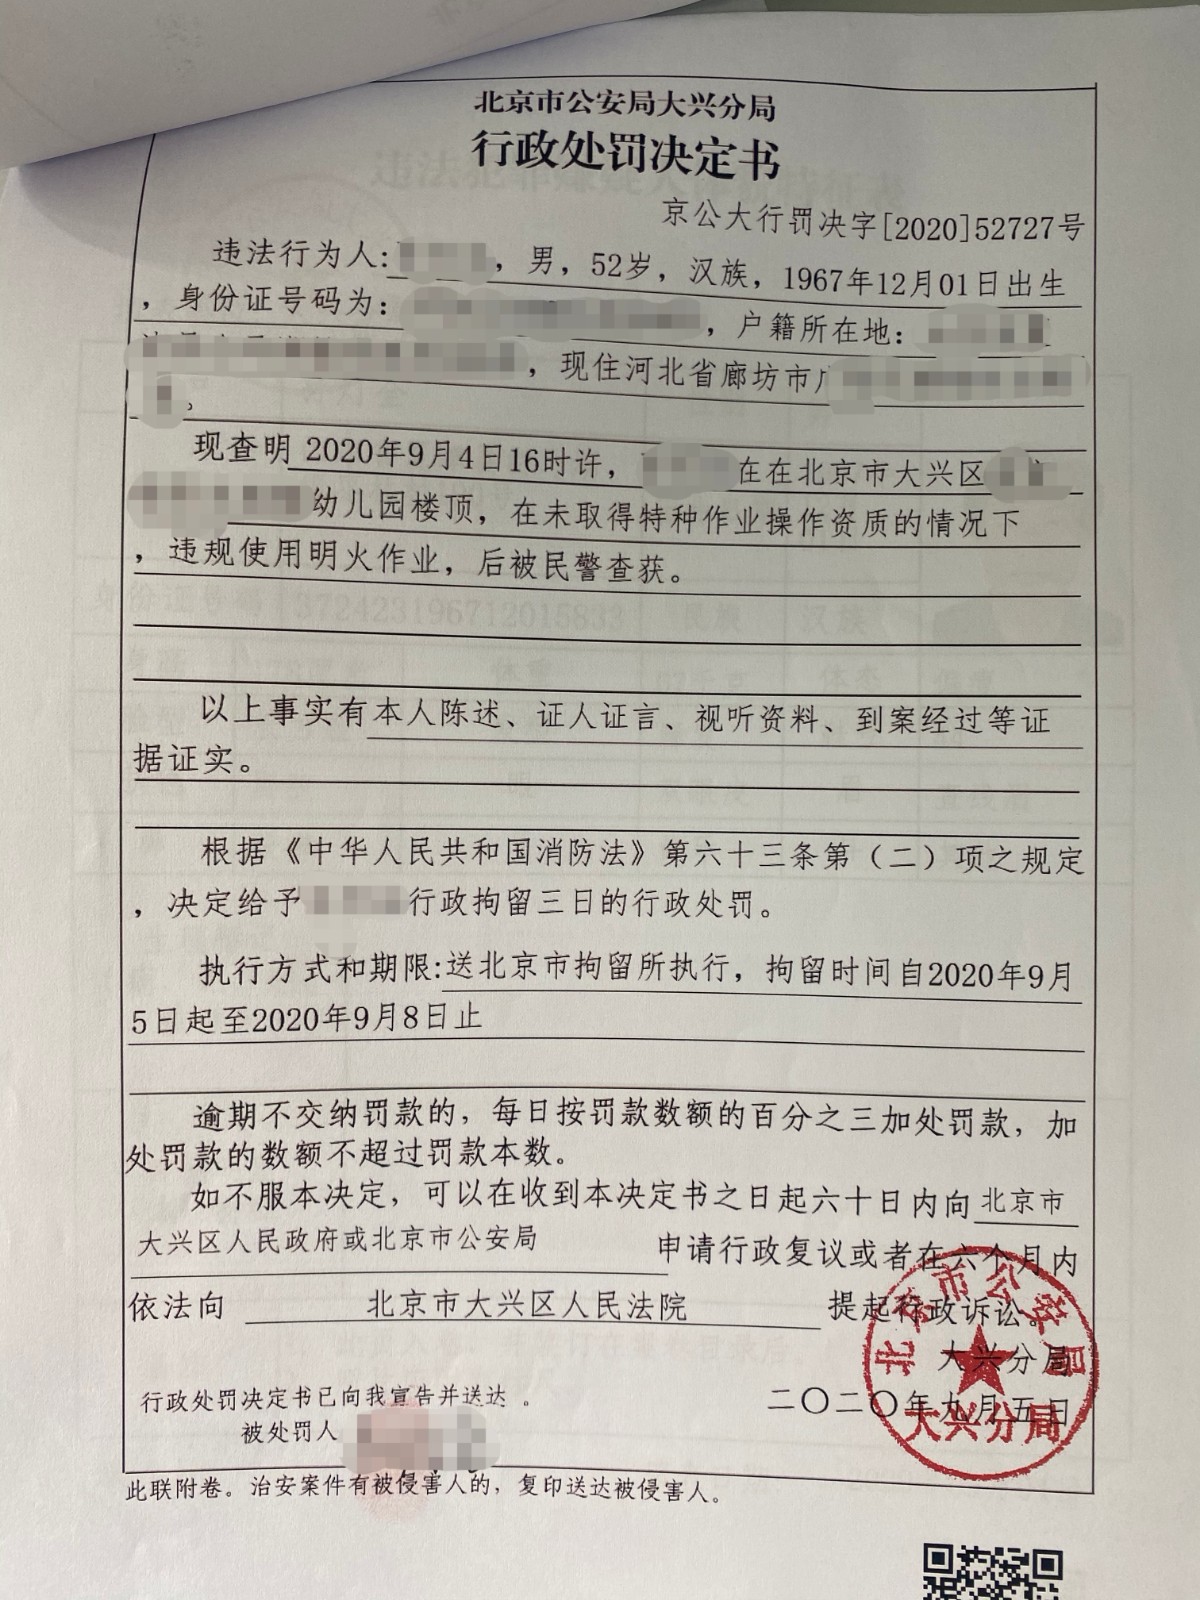 北京市公安局大兴分局
行政处罚决定书
京公大行罚决字[2020]52727号
违法行为人: ，男，52岁，汉族，1967年12月01日出生
，身份证号码为： ，户籍所在地：
，现住河北省廊坊市
。
现查明 2020年9月4日16时许， 在在北京市大兴区
幼儿园楼顶，在未取得特种作业操作资质的情况下
，违规使用明火作业，后被民警查获。
以上事实有本人陈述、证人证言、视听资料、到案经过等证
据证实。
根据《中华人民共和国消防法》第六十三条第（二）项之规定
，决定给予 行政拘留三日的行政处罚。
执行方式和期限:送北京市拘留所执行，拘留时间自2020年9月
5日起至2020年9月8日止
逾期不交纳罚款的，每日按罚款数额的百分之三加处罚款，加
处罚款的数额不超过罚款本数。
如不服本决定，可以在收到本决定书之日起六十日内向北京市
大兴区人民政府或北京市公安局 申请行政复议或者在六个月内
依法向 北京市大兴区人民法院 提起行政诉讼。
大兴分局
二〇二〇年九月五日
北京市公安局
大兴分局
行政处罚决定书已向我宣告并送达 。
被处罚人
此联附卷。治安案件有被侵害人的，复印送达被侵害人。